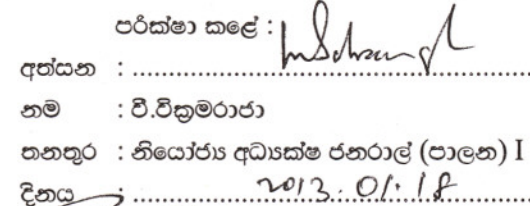 පරීක්ෂා කළේ :
අත්සන : ..............................
නම : වී.වික්‍රමරාජා
තනතුර : නියෝජ්‍ය අධ්‍යක්ෂ ජනරාල් (පාලන) I
දිනය : 2013. 01. 18